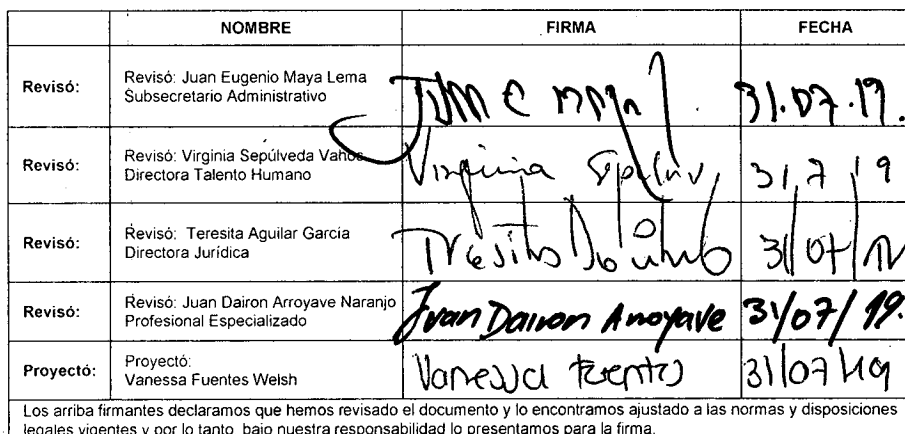 NOMBRE FIRMA FECHA
Revisó: Revisó: Juan Eugenio Maya Lema
Subsecretario Administrativo
31.07.19.
Revisó: Revisó: Virginia Sepúlveda Vahos
Directora Talento Humano
Virginia 31,7,19
Revisó: Revisó: Teresita Aguilar García
Directora Jurídica
Teresita 31/07/
Revisó: Revisó: Juan Dairon Arroyave Naranjo
Profesional Especializado
Juan Dairon Arroyave 31/07/19.
Proyectó: Proyectó:
Vanessa Fuentes Welsh
Vanessa Fuentes 31/07/19
Los arriba firmantes declaramos que hemos revisado el documento y lo encontramos ajustado a las normas y disposiciones
legales vigentes y por lo tanto, bajo nuestra responsabilidad lo presentamos para la firma.